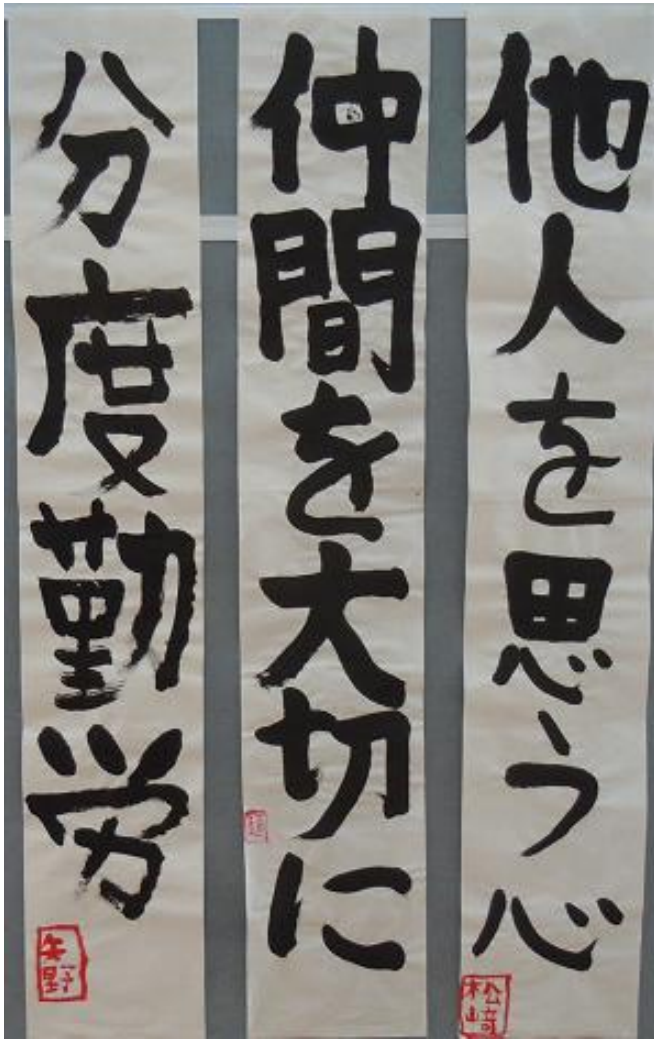 他人を思う心
松崎
仲間を大切に
分度勤労
矢野